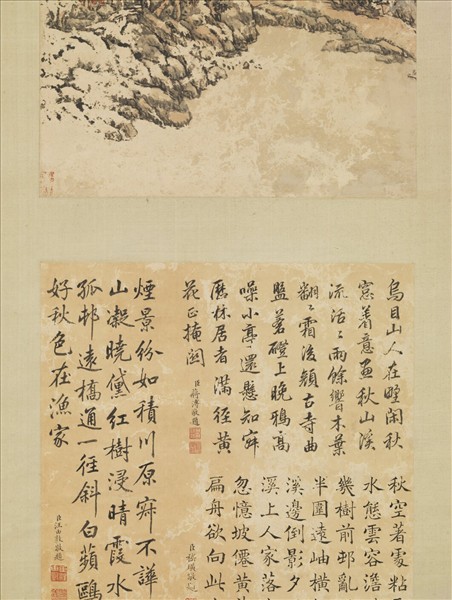 烏目山人在墅閑秋
窓着意画秋山溪
流活〻雨餘響木葉
翻〻霜後頳古寺曲
盤蒼磴上晚鴉高
噪小亭還懸知寂
歷林居者滿徑黃
花正掩關
臣蔣溥敬題
秋空著處粘
水態雲容澹
幾樹前邨亂
半圍遠岫橫
溪邊倒影夕
溪上人家落
忽憶坡僊黃
扁舟欲向此
臣嵇璜敬題
煙景紛如積川原寂不譁
山凝曉黛紅樹浸晴霞水
孤邨遠橋通一徑斜白蘋鷗
好秋色在漁家
臣汪由敦敬題